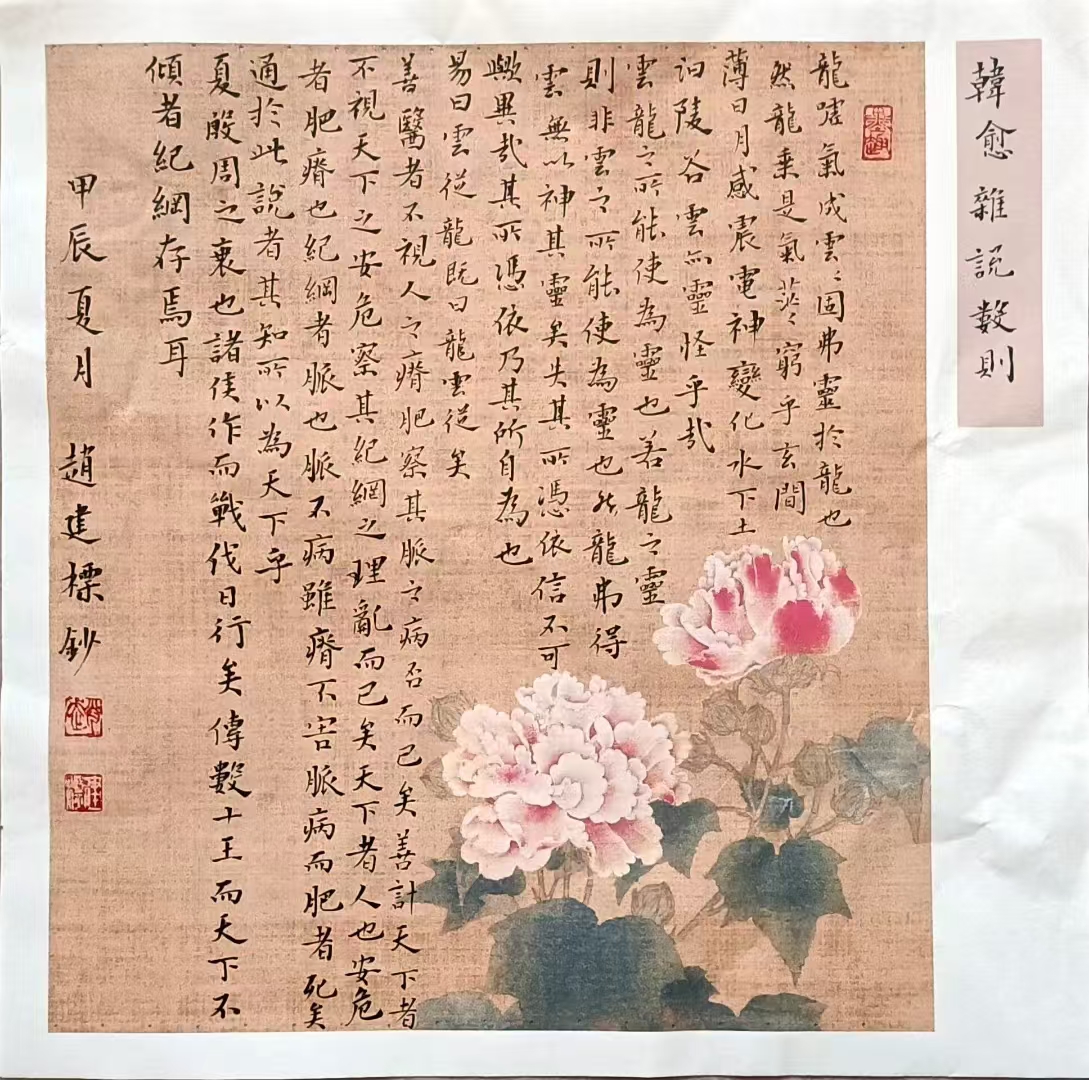 韓愈雜說數則
龍噓氣成雲〻固弗靈於龍也
然龍乘是氣茫〻窮乎玄間
薄日月感震電神變化水下土
汩陵谷雲亦靈怪乎哉
雲龍之所能使為靈也若龍之靈
則非雲之所能使為靈也然龍弗得
雲無以神其靈矣失其所憑依信不可
歟異哉其所憑依乃其所自為也
易曰雲從龍既曰龍雲從矣
善醫者不視人之瘠肥察其脈之病否而已矣善計天下者
不視天下之安危察其紀綱之理亂而已矣天下者人也安危
者肥瘠也紀綱者脈也脈不病雖瘠不害脈病而肥者死矣
通於此說者其知所以為天下乎
夏殷周之衰也諸侯作而戰伐日行矣傳數十王而天下不
傾者紀綱存焉耳
甲辰夏月 趙建標鈔